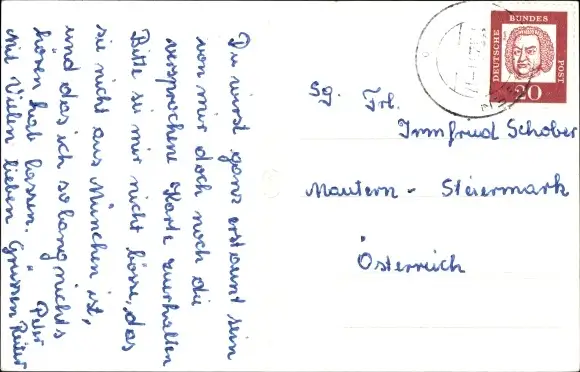 Du wirst ganz erstaunt sein
von mir doch noch die
versprochene Karte zuerhalten
Bitte sei mir nicht bösse, das
sie nicht aus München ist,
und das ich so lang nichts
hören hab lassen.
Mit Vielen lieben Grüssen Peter
Reiter
DEUTSCHE
BUNDES
POST
20
Sg. Frl.
Irmfried Schober
Mautern - Steiermark
Österreich